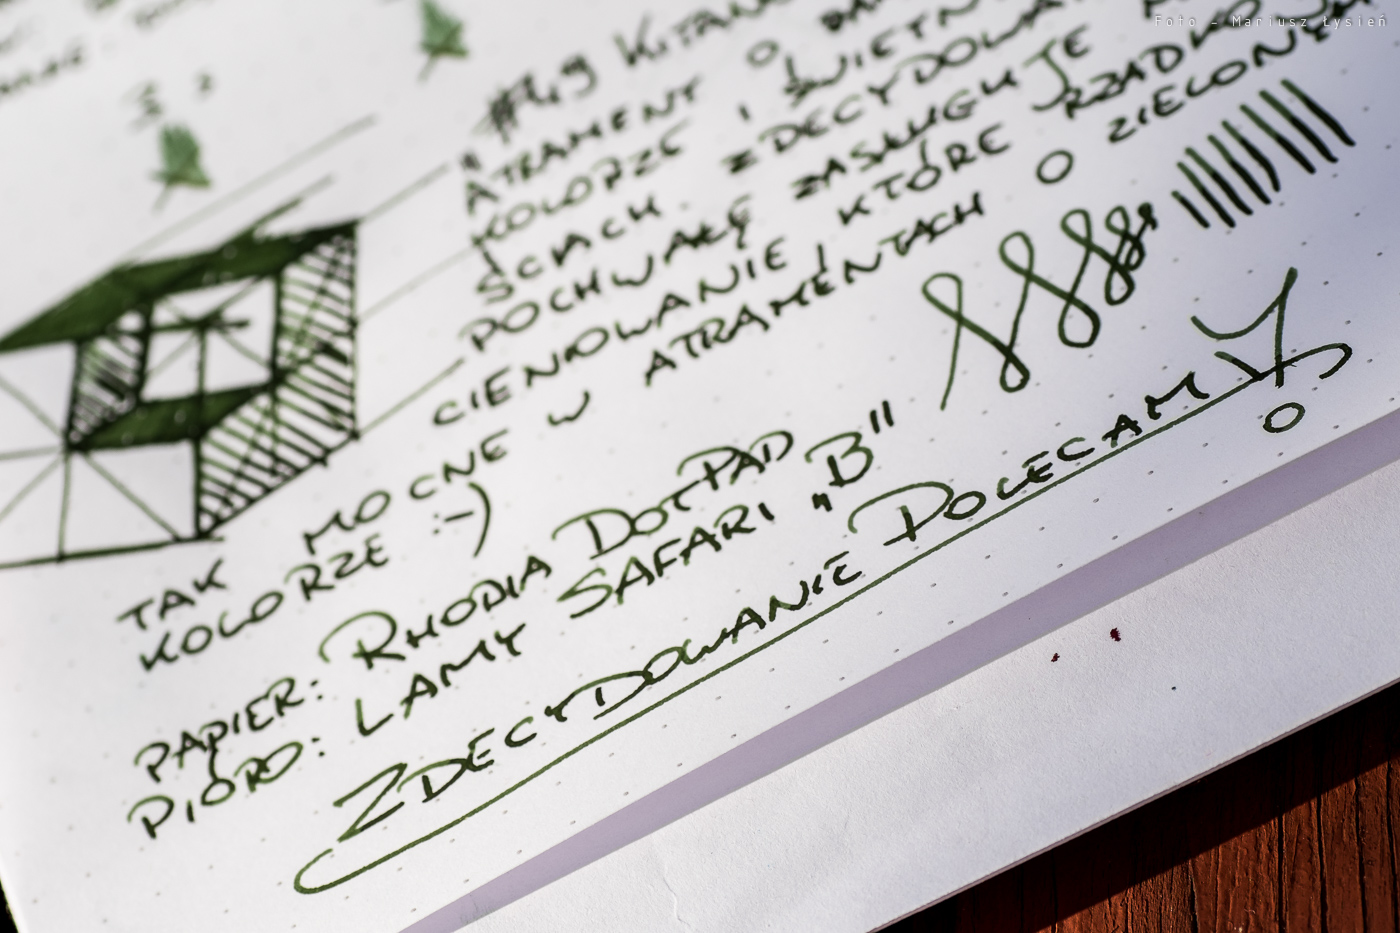 Foto - Mariusz Łysień
ATRAMENT O
KOLORZE I ŚWIETN
ŚCIACH. ZDECYDOWA
POCHWAŁĘ ZASŁUGUJE
CIENIOWANIE, KTÓRE RZADKO
W ATRAMENTACH O ZIELONY
TAK MOCNE
KOLORZE :-)
PAPIER: RHODIA DOTPAD
PIÓRO: LAMY SAFARI „B"
ZDECYDOWANIE POLECAM!